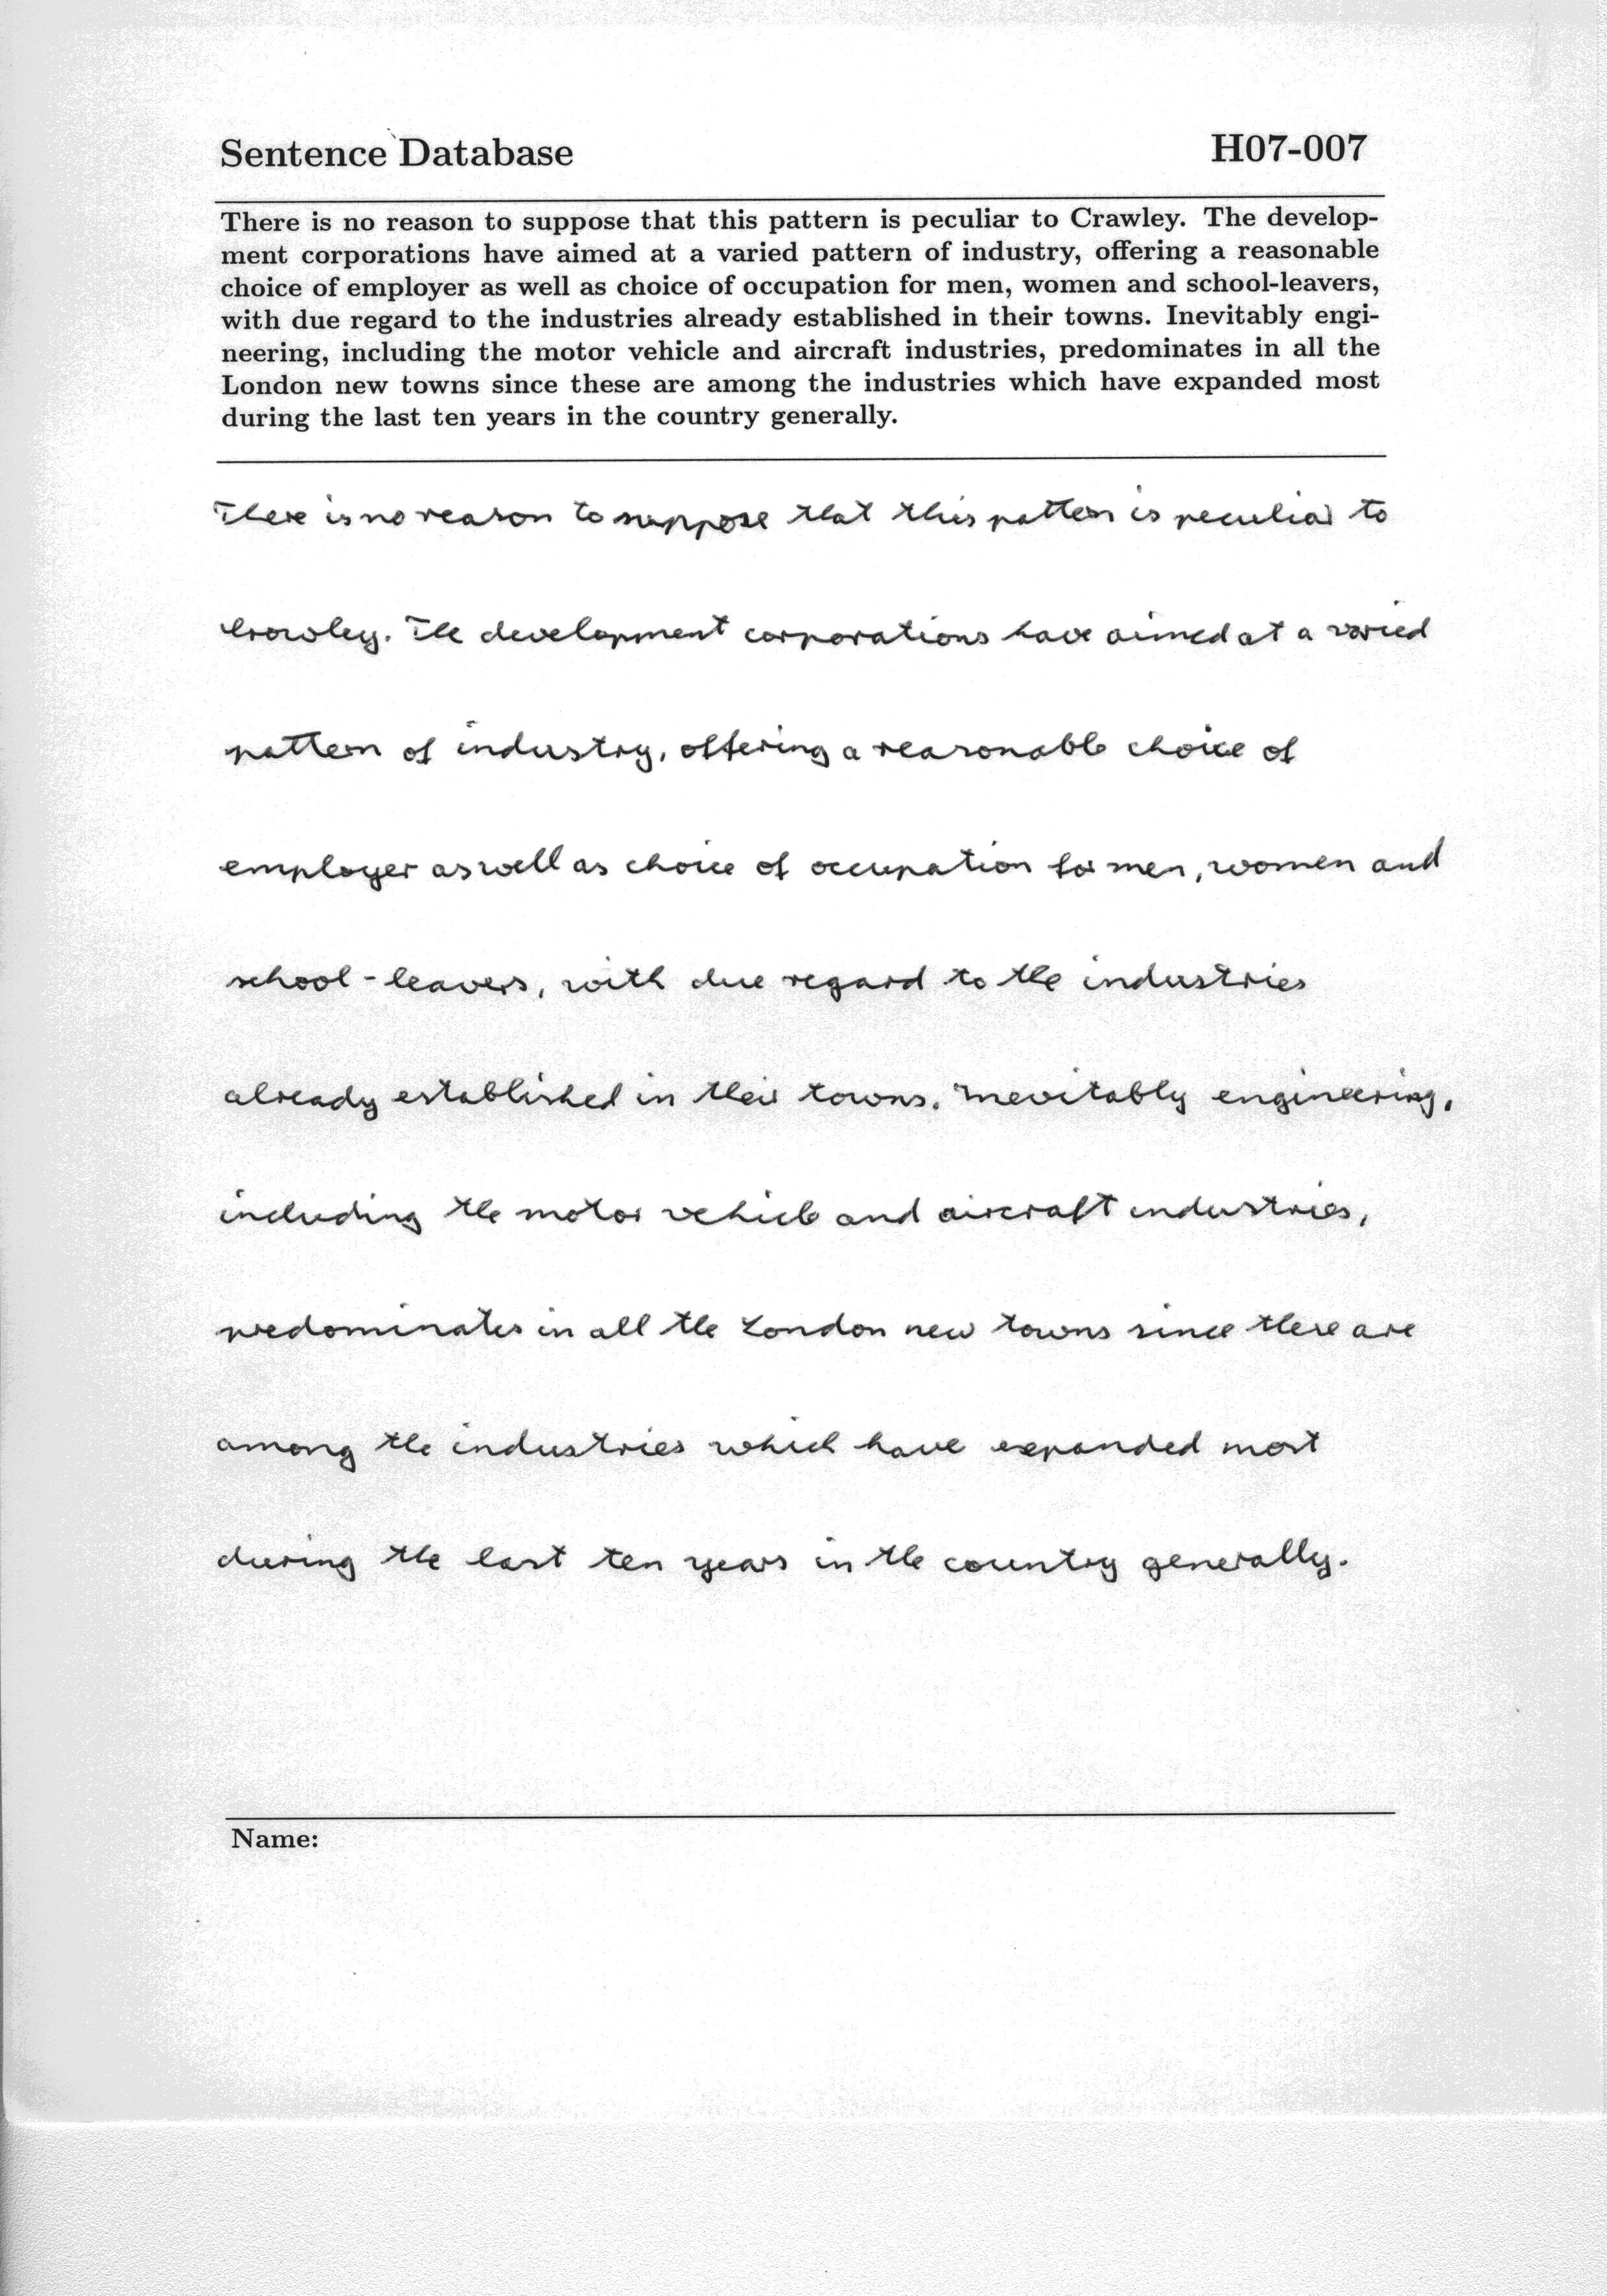 Sentence Database H07-007
There is no reason to suppose that this pattern is peculiar to Crawley. The develop-
ment corporations have aimed at a varied pattern of industry, offering a reasonable
choice of employer as well as choice of occupation for men, women and school-leavers,
with due regard to the industries already established in their towns. Inevitably engi-
neering, including the motor vehicle and aircraft industries, predominates in all the
London new towns since these are among the industries which have expanded most
during the last ten years in the country generally.
There is no reason to suppose that this pattern is peculiar to
Crawley. The development corporations have aimed at a varied
pattern of industry, offering a reasonable choice of
employer as well as choice of occupation for men, women and
school-leavers, with due regard to the industries
already established in their towns. Inevitably engineering,
including the motor vehicle and aircraft industries,
predominates in all the London new towns since these are
among the industries which have expanded most
during the last ten years in the country generally.
Name: